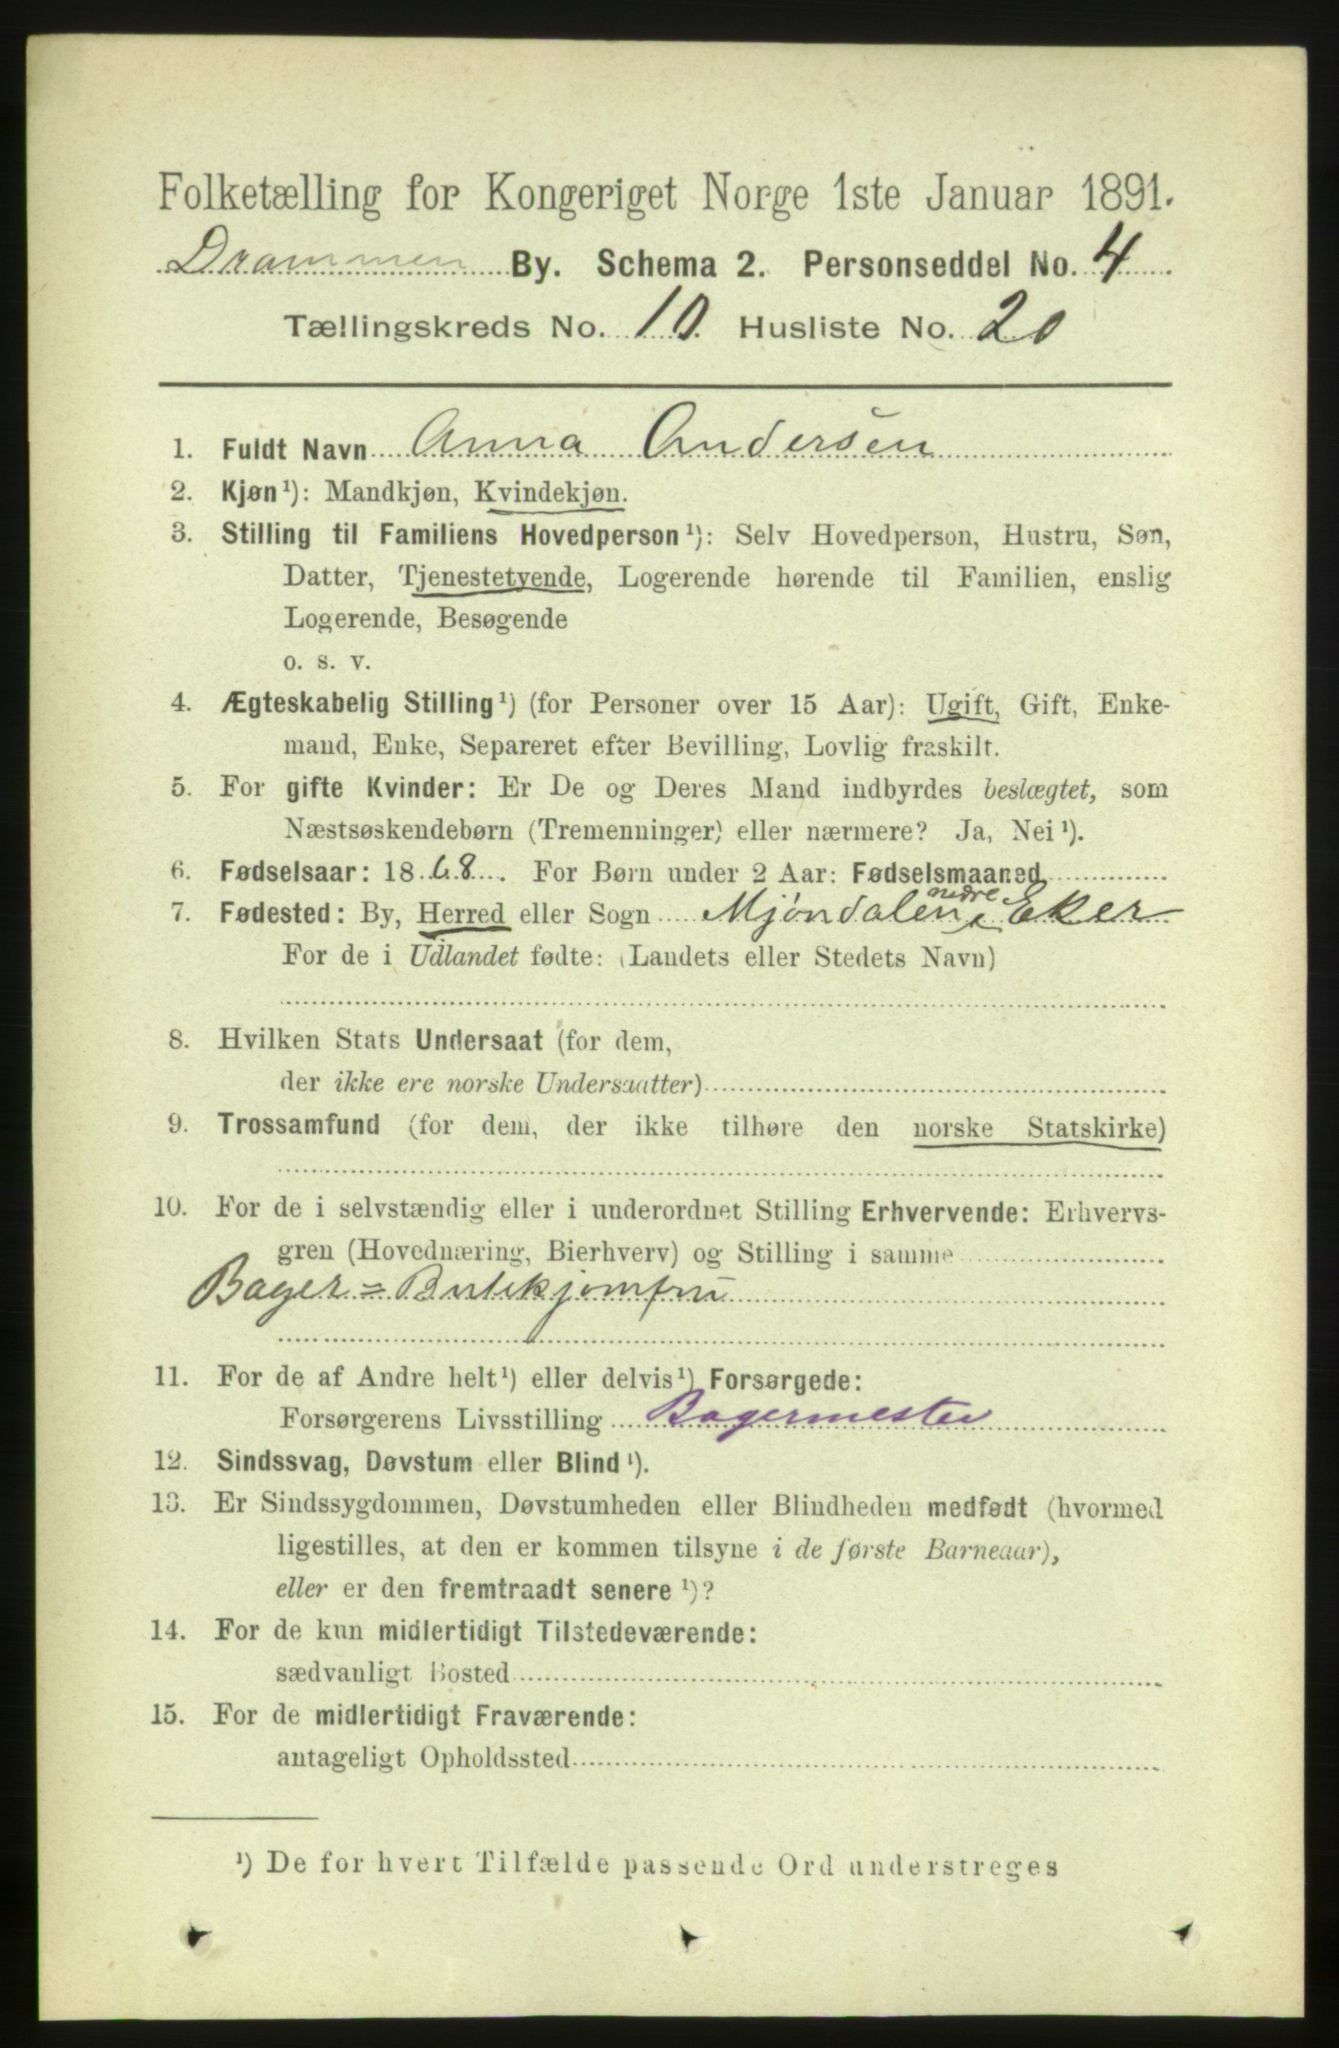 Folketælling for Kongeriget Norge 1ste Januar 1891.
Drammen By. Schema 2. Personseddel No. 4
Tællingskreds No. 10 Husliste No. 20
1. Fuldt Navn Anna Andersen
2. Kjøn¹): Mandkjøn, Kvindekjøn.
3. Stilling til Familiens Hovedperson¹): Selv Hovedperson, Hustru, Søn,
Datter, Tjenestetyende, Logerende hørende til Familien, enslig
Logerende, Besøgende
o. s. v.
4. Ægteskabelig Stilling¹) (for Personer over 15 Aar): Ugift, Gift, Enke-
mand, Enke, Separeret efter Bevilling, Lovlig fraskilt.
5. For gifte Kvinder: Er De og Deres Mand indbyrdes beslægtet, som
Næstsøskendebørn (Tremenninger) eller nærmere? Ja, Nei¹).
6. Fødselsaar: 1868. For Børn under 2 Aar: Fødselsmaaned
7. Fødested: By, Herred eller Sogn Mjöndalen, nedre Eker
For de i Udlandet fødte: (Landets eller Stedets Navn)
8. Hvilken Stats Undersaat (for dem,
der ikke ere norske Undersaatter)
9. Trossamfund (for dem, der ikke tilhøre den norske Statskirke)
10. For de i selvstændig eller i underordnet Stilling Erhvervende: Erhvervs-
gren (Hovednæring, Bierhverv) og Stilling i samme
Bager = Butikjomfru
11. For de af Andre helt¹) eller delvis¹) Forsørgede:
Forsørgerens Livsstilling Bagermester
12. Sindssvag, Døvstum eller Blind¹).
13. Er Sindssygdommen, Døvstumheden eller Blindheden medfødt (hvormed
ligestilles, at den er kommen tilsyne i de første Barneaar),
eller er den fremtraadt senere¹)?
14. For de kun midlertidigt Tilstedeværende:
sædvanligt Bosted
15. For de midlertidigt Fraværende:
antageligt Opholdssted
¹) De for hvert Tilfælde passende Ord understreges